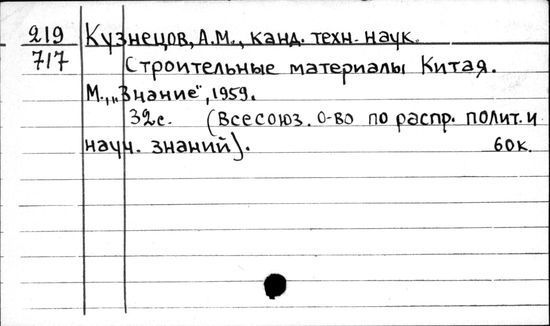 219 Кузнецов, А.М., канд. техн. наук.
717 Строительные материалы Китая.
М., „Знание", 1959.
32с. (Всесоюз. о-во по распр. полит. и
науч. знаний). 60к.